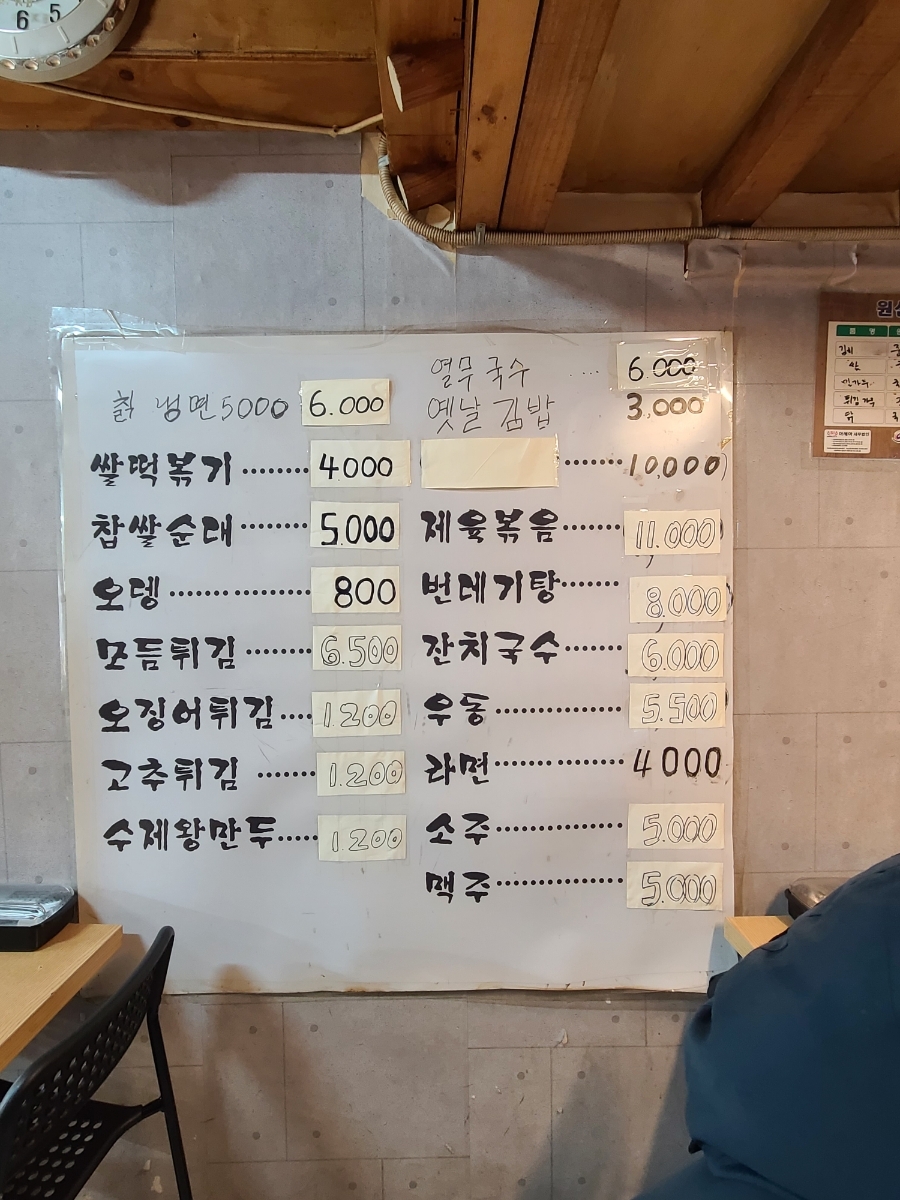 6 5
칡 냉면 5000 6.000
쌀떡볶기 ........ 4000
찹쌀순대 ........ 5.000
오뎅 ................ 800
모듬튀김 ........ 6.500
오징어튀김 .... 1.200
고추튀김 ....... 1.200
수제왕만두 ..... 1.200
열무 국수 ..... 6.000
옛날 김밥 3,000
....... 10,000
제육볶음 ....... 11.000
번데기탕 ....... 8.000
잔치국수 ........ 6.000
우동 ............... 5.500
라면 ............... 4000
소주 ............... 5.000
맥주 ............... 5.000
원산
품 명
김치
쌀
닭